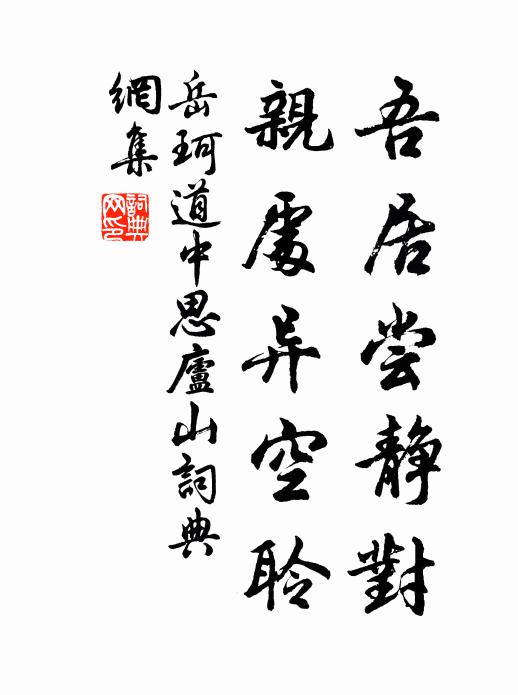 吾居尝静對
親處异空聆
岳珂道中思廬山詞典
網集
詞典
网印